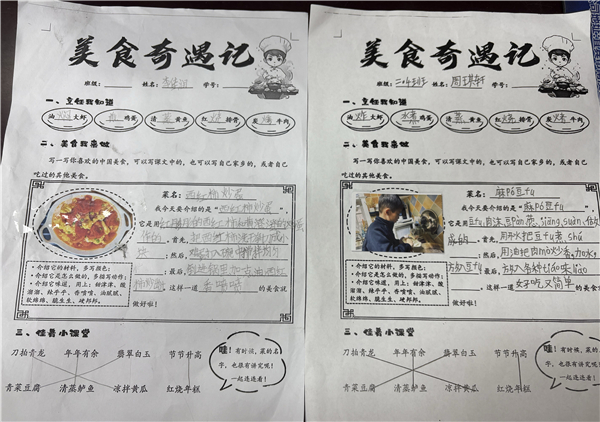 美食奇遇记
班级: 姓名: 学号:
一、烹饪我知道
油 大虾 鸡蛋 清 黄鱼 红 排骨 炭 牛肉
二、美食我来做
写一写你喜欢的中国美食,可以写课文中的,也可以写自己家乡的,或者自己
吃过的其他美食。
菜名:西红柿炒蛋
我今天要介绍的是“西红柿炒蛋”
它是用
首先,把西红柿
然后,鸡蛋
最后,
这样一道 的美食就
做好啦!
·介绍它的材料,多写颜色;
·介绍它是怎么做的,多描写动作;
·介绍它味道,用上:甜津津、酸
溜溜、辣乎乎、香喷喷、油腻腻、
软绵绵、脆生生、硬邦邦。
三、佳肴小课堂
刀拍青龙 年年有余 翡翠白玉 节节升高
青菜豆腐 清蒸鲈鱼 凉拌黄瓜 红烧年糕
哇!有时候,菜的名
字,也很有讲究呢!
一起连连看!
美食奇遇记
班级: 姓名:周琪轩 学号:
一、烹饪我知道
油炸大虾 水煮鸡蛋 清蒸黄鱼 红烧排骨 炭烤牛肉
二、美食我来做
写一写你喜欢的中国美食,可以写课文中的,也可以写自己家乡的,或者自己
吃过的其他美食。
菜名:麻pó豆fu
我今天要介绍的是“麻pó豆fu”
它是用豆fu,肉沫,豆bàn酱,jiāng,suàn,
做的,首先,用水把豆fu煮shú
然后,用油把肉mò炒香,加水,
最后,放入各种tiáo味liào
这样一道 好吃又简单 的美食就
做好啦!
·介绍它的材料,多写颜色;
·介绍它是怎么做的,多描写动作;
·介绍它味道,用上:甜津津、酸
溜溜、辣乎乎、香喷喷、油腻腻、
软绵绵、脆生生、硬邦邦。
三、佳肴小课堂
刀拍青龙 年年有余 翡翠白玉 节节升高
青菜豆腐 清蒸鲈鱼 凉拌黄瓜 红烧年糕
哇!有时候,菜的名
字,也很有讲究呢!
一起连连看!